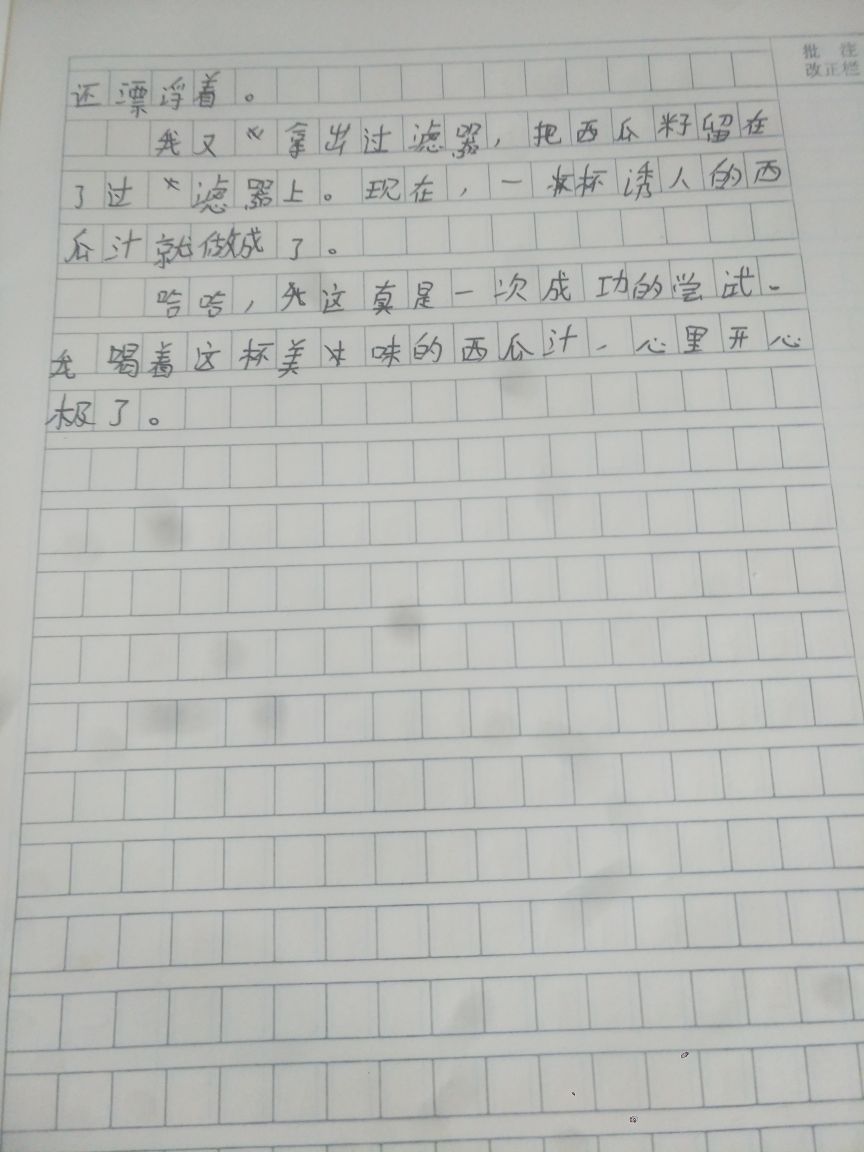 批 注
改正栏
还漂浮着。
我又拿出过滤器，把西瓜籽留在
了过滤器上。现在，一杯诱人的西
瓜汁就做成了。
哈哈，这真是一次成功的尝试。
我喝着这杯美味的西瓜汁，心里开心
极了。